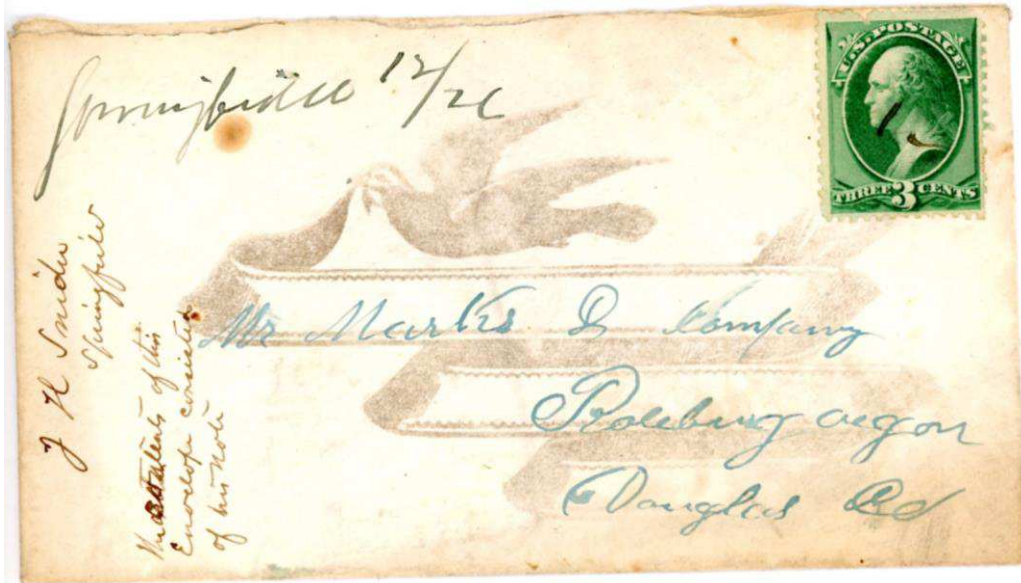 Springfield 12/26
U.S. POSTAGE
THREE 3 CENTS
J H Snider
Springfield
The contents of this
Envelope consisted
of his note
Mr Marks & Company
Roseburg oregon
Douglas Co